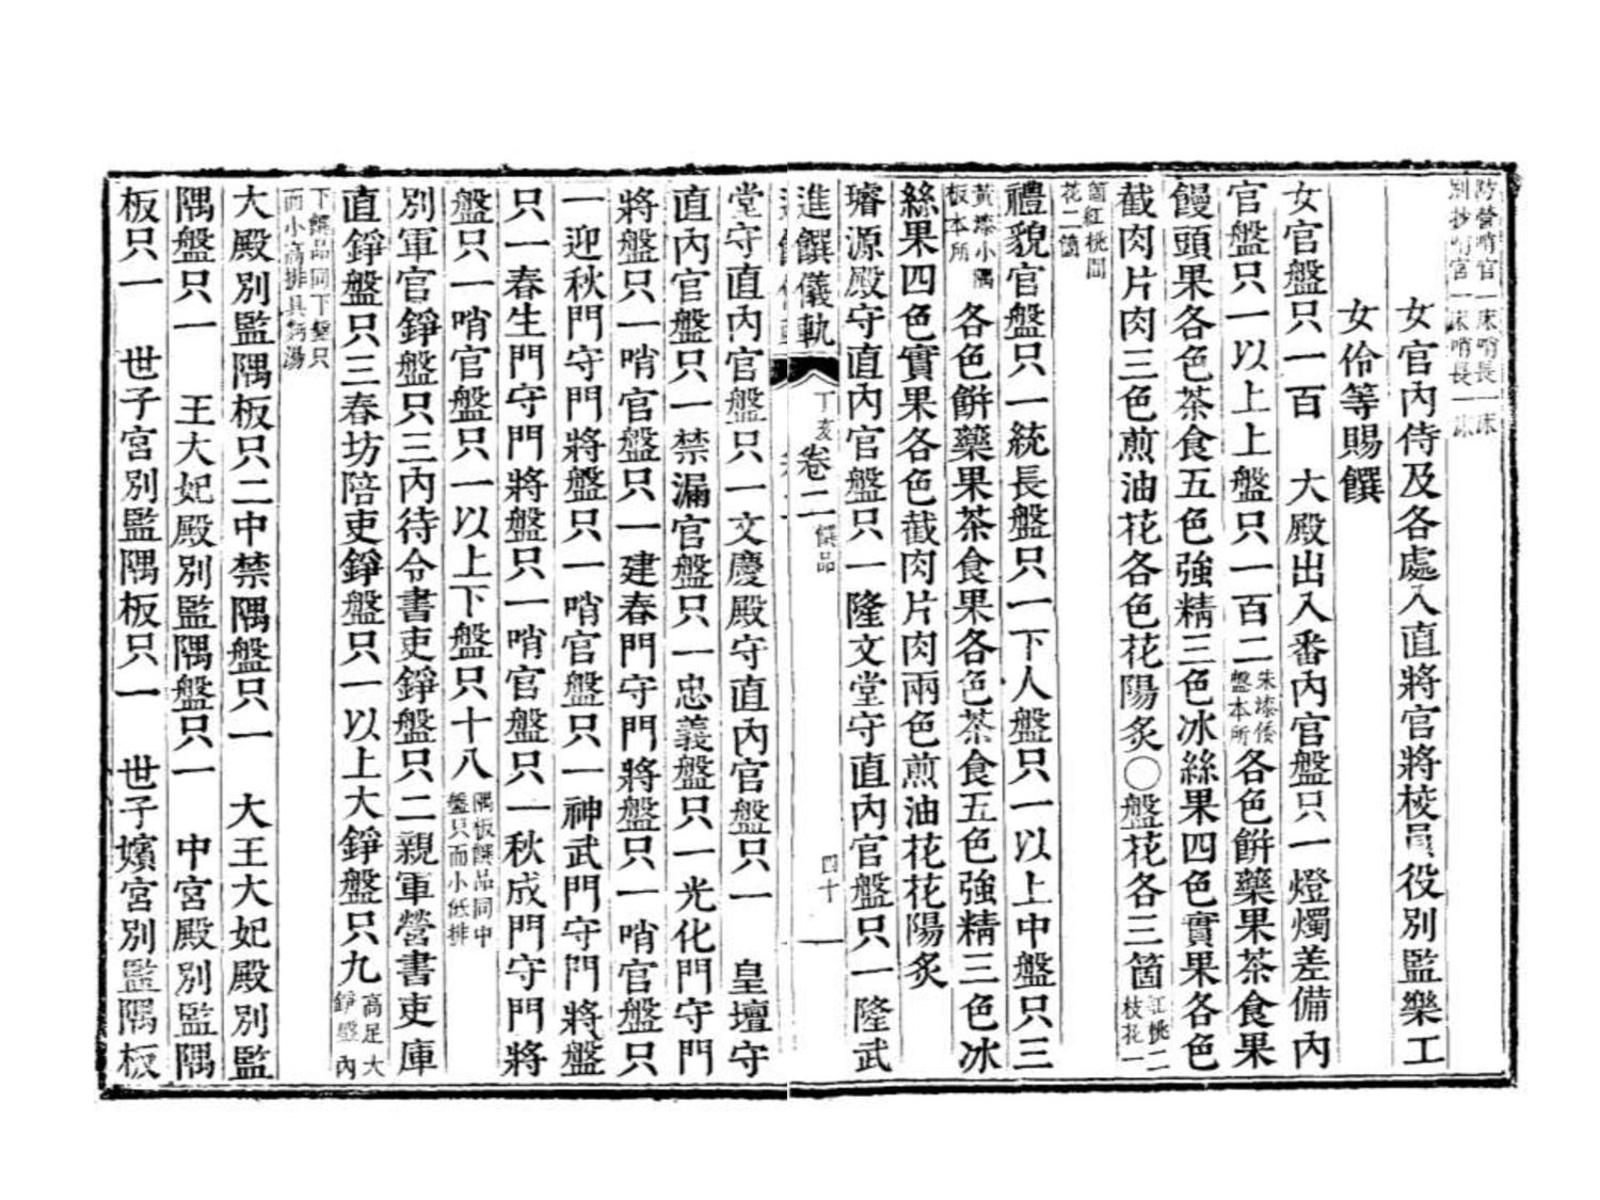 防營哨官一床哨長一床
別抄哨官一床哨長一床
女官內侍及各處入直將官將校員役別監樂工
女伶等賜饌
女官盤只一百　大殿出入番內官盤只一燈燭差備內
官盤只一以上上盤只一百二朱漆倭盤本所各色餠藥果茶食果
饅頭果各色茶食五色強精三色冰絲果四色實果各色
截肉片肉三色煎油花各色花陽炙○盤花各三箇紅桃二枝花一
箇紅桃間花二箇
禮貌官盤只一統長盤只一下人盤只一以上中盤只三
黃漆小隅板本所各色餠藥果茶食果各色茶食五色強精三色冰
絲果四色實果各色截肉片肉兩色煎油花花陽炙
璿源殿守直內官盤只一隆文堂守直內官盤只一隆武
進饌儀軌 丁亥 卷二 饌品 四十
堂守直內官盤只一文慶殿守直內官盤只一　皇壇守
直內官盤只一禁漏官盤只一忠義盤只一光化門守門
將盤只一哨官盤只一建春門守門將盤只一哨官盤只
一迎秋門守門將盤只一哨官盤只一神武門守門將盤
只一春生門守門將盤只一哨官盤只一秋成門守門將
盤只一哨官盤只一以上下盤只十八隅板饌品同中盤只而小低排
別軍官錚盤只三內待令書吏錚盤只二親軍營書吏庫
直錚盤只三春坊陪吏錚盤只一以上大錚盤只九高足大錚盤內
下饌品同下盤只而小高排具麪湯
大殿別監隅板只二中禁隅盤只一　大王大妃殿別監
隅盤只一　王大妃殿別監隅盤只一　中宮殿別監隅
板只一　世子宮別監隅板只一　世子嬪宮別監隅板